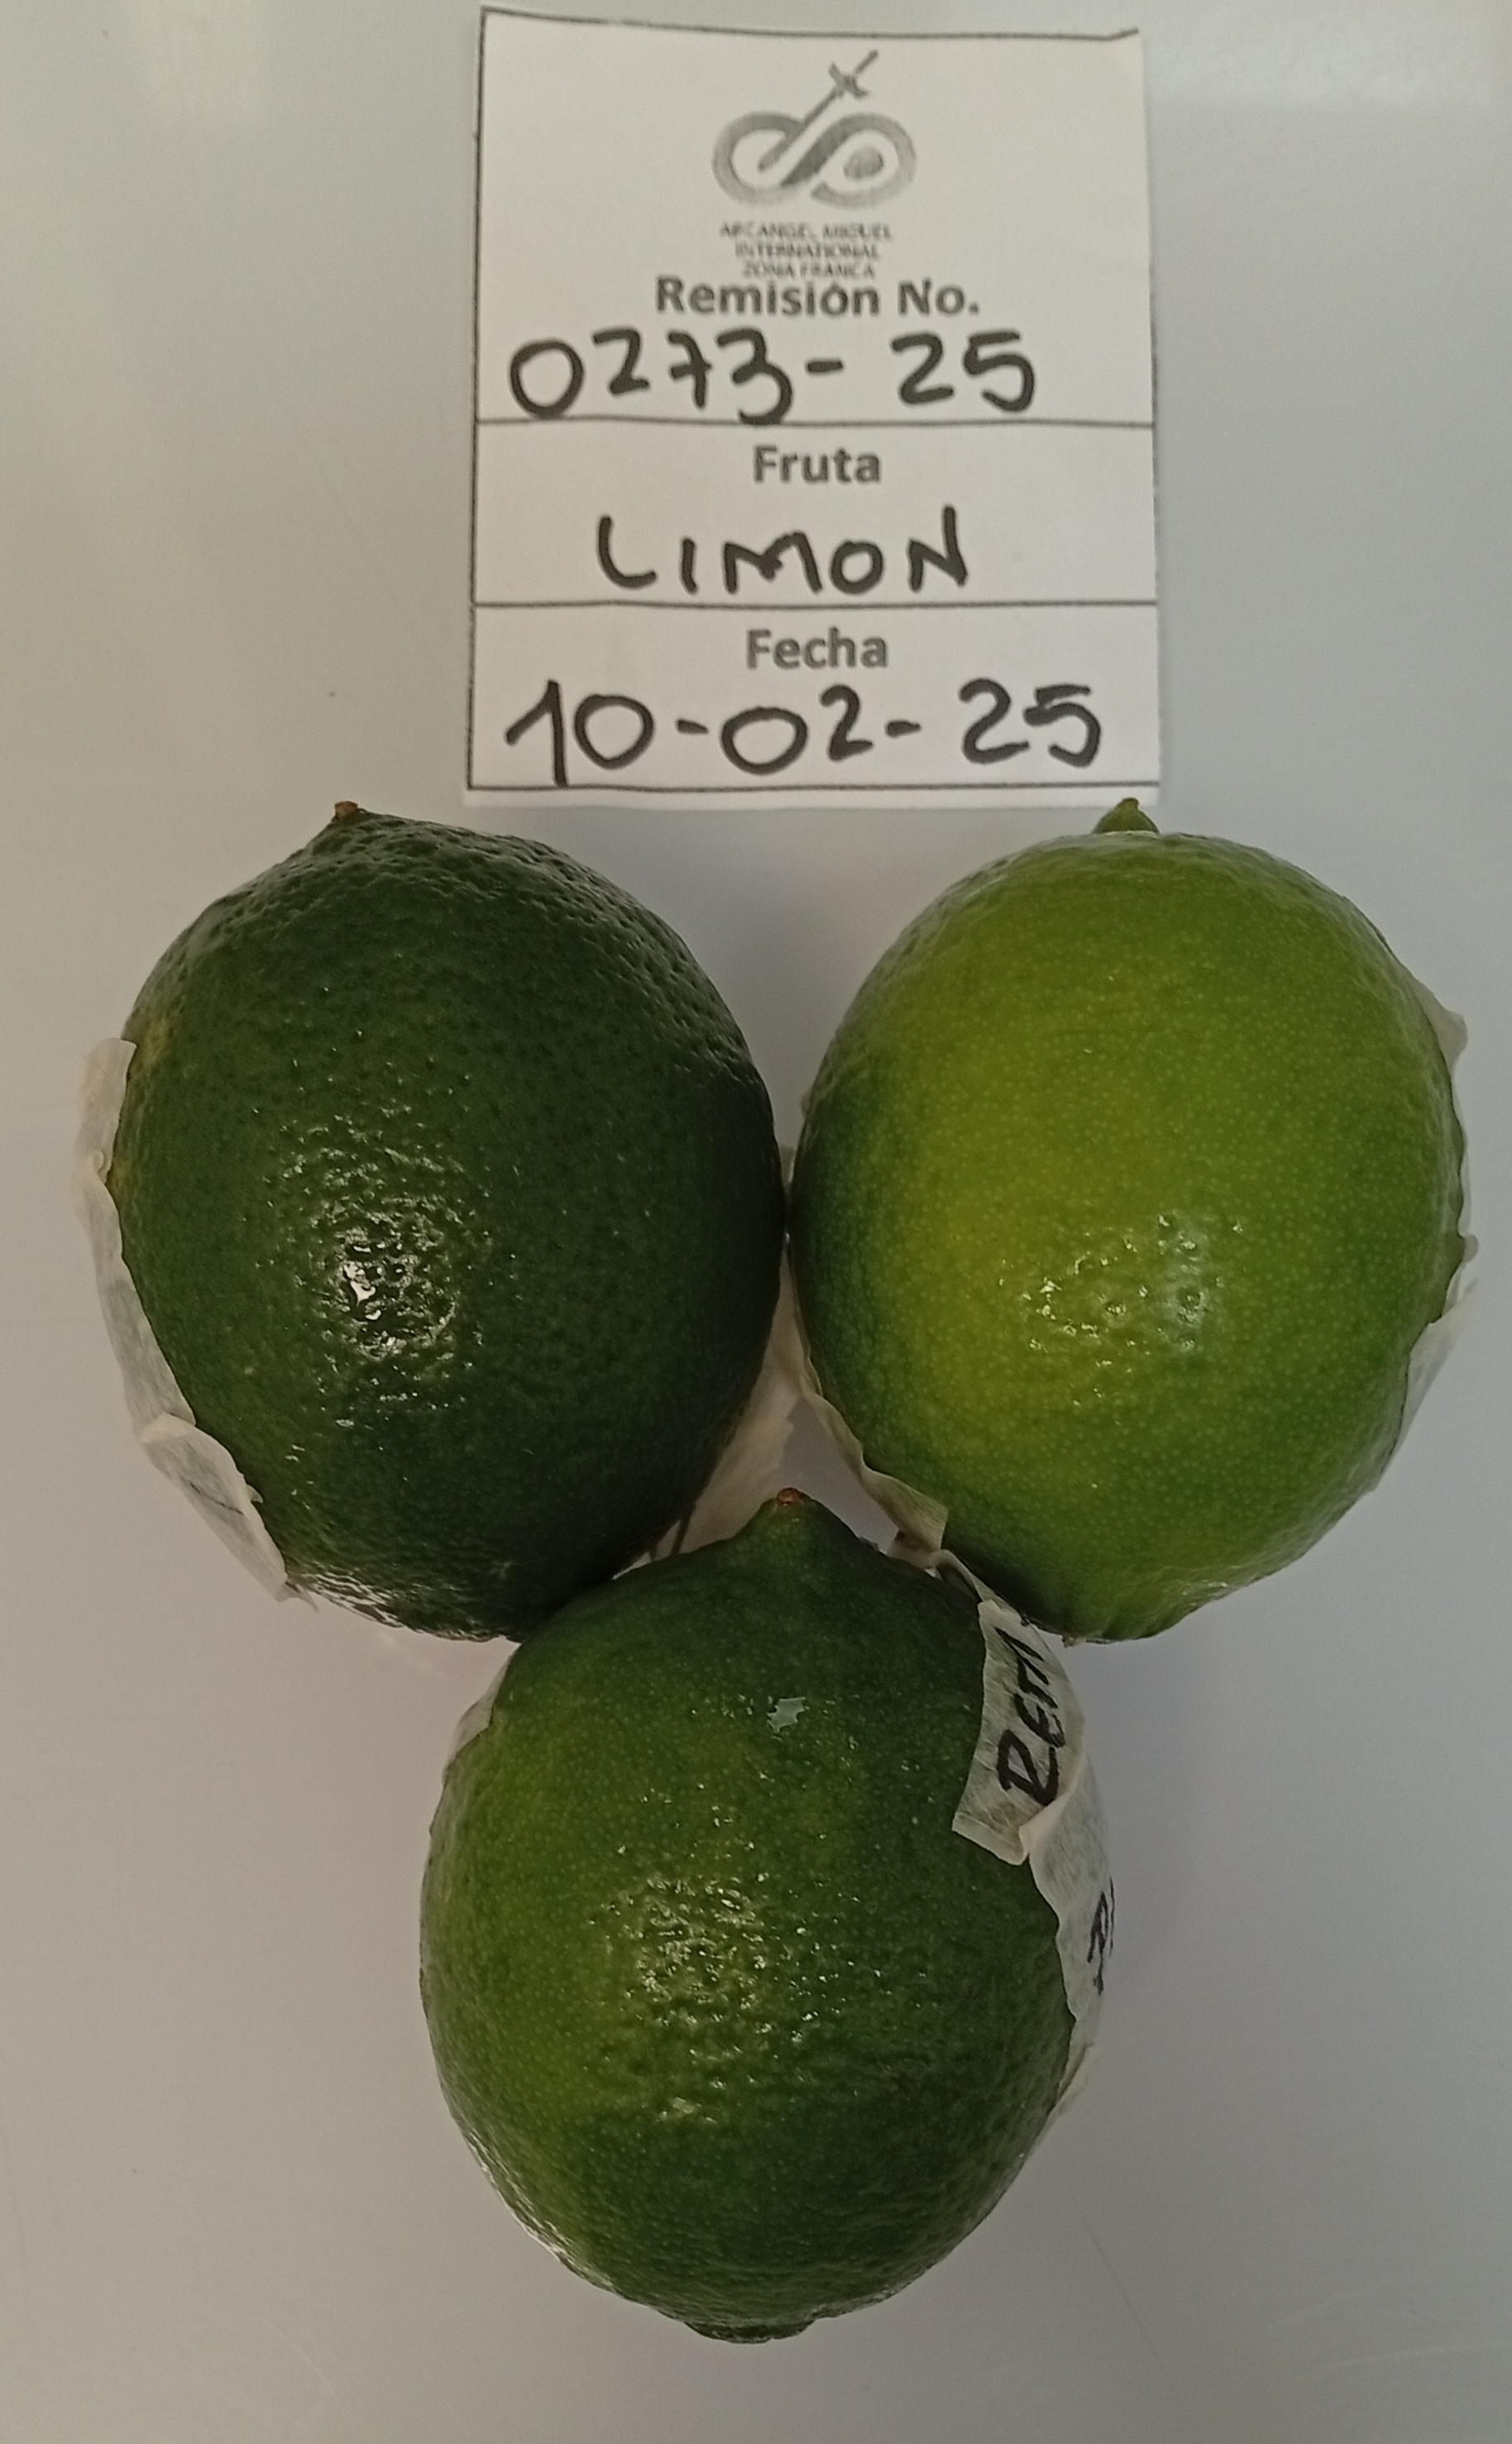 ARCANGEL MIGUEL
INTERNATIONAL
ZONA FRANCA
Remisión No.
0273-25
Fruta
LIMON
Fecha
10-02-25
REM